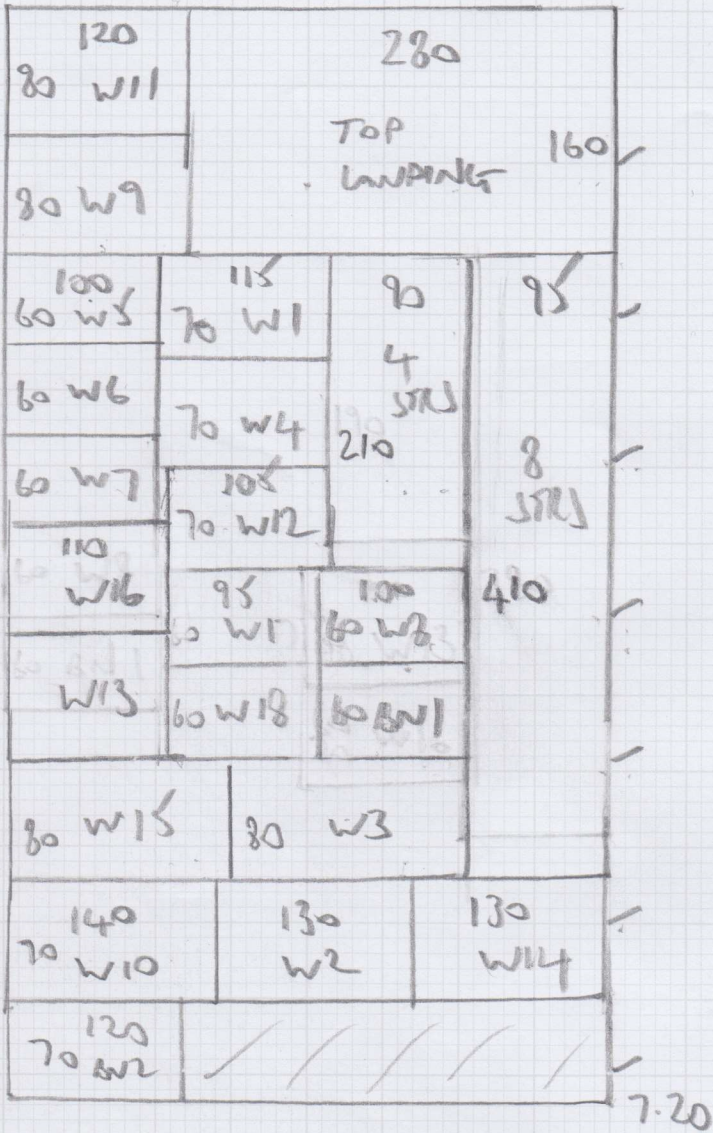 120
80 W11
280
TOP
LANDING
160
80 W9
100
60 W5
115
70 W1
90
4
STRS
210
95
8
STRS
410
60 W6
70 W4
60 W7
105
70 W12
110
W16
95
60 W17
100
60 W8
W13
60 W18
60 BW1
80 W15
80 W3
140
70 W10
130
W2
130
W14
120
70 BW2
7.20